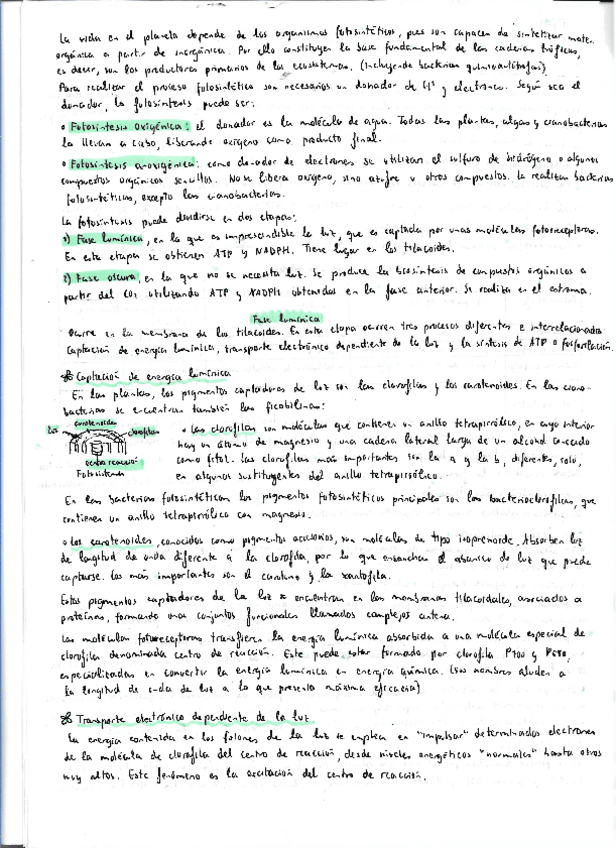 La vida en el planeta depende de los organismos fotosintéticos, pues son capaces de sintetizar mater.
orgánica a partir de inorgánica. Por ello constituyen la base fundamental de las cadenas tróficas,
es decir, son los productores primarios de los ecosistemas. (Incluyendo bacterias quimioautótrofas)
Para realizar el proceso fotosintético son necesarios un donador de H⁺ y electrones. Según sea el
donador, la fotosíntesis puede ser:
• Fotosíntesis oxigénica: el donador es la molécula de agua. Todas las plantas, algas y cianobacterias
la llevan a cabo, liberando oxígeno como producto final.
• Fotosíntesis anoxigénica: como donador de electrones se utilizan el sulfuro de hidrógeno o algunos
compuestos orgánicos sencillos. No se libera oxígeno, sino azufre u otros compuestos. La realizan bacterias
fotosintéticas, excepto las cianobacterias.
La fotosíntesis puede dividirse en dos etapas:
1) Fase lumínica, en la que es imprescindible la luz, que es captada por unas moléculas fotorreceptoras.
En esta etapa se obtienen ATP y NADPH. Tiene lugar en los tilacoides.
2) Fase oscura, en la que no se necesita luz. Se produce la biosíntesis de compuestos orgánicos a
partir del CO₂ utilizando ATP y NADPH obtenidos en la fase anterior. Se realiza en el estroma.
Fase lumínica
Ocurre en la membrana de los tilacoides. En esta etapa ocurren tres procesos diferentes e interrelacionados
captación de energía lumínica, transporte electrónico dependiente de la luz y la síntesis de ATP o fosforilación.
Captación de energía lumínica
En las plantas, los pigmentos captadores de luz son las clorofilas y los carotenoides. En las ciano-
bacterias se encuentran también las ficobilinas:
carotenoides
luz
clorofilas
centro reacción
Fotosistema
• Las clorofilas son moléculas que contienen un anillo tetrapirrólico, en cuyo interior
hay un átomo de magnesio y una cadena lateral larga de un alcohol conocido
como fitol. Las clorofilas más importantes son la a y la b, diferentes, solo,
en algunos sustituyentes del anillo tetrapirrólico.
En las bacterias fotosintéticas los pigmentos fotosintéticos principales son las bacterioclorofilas, que
contienen un anillo tetrapirrólico con magnesio.
• Los carotenoides, conocidos como pigmentos accesorios, son moléculas de tipo isoprenoide. Absorben luz
de longitud de onda diferente a la clorofila, por lo que ensanchan el abanico de luz que puede
captarse. Los más importantes son el caroteno y la xantofila.
Estos pigmentos captadores de la luz se encuentran en las membranas tilacoidales, asociados a
proteínas, formando unos conjuntos funcionales llamados complejos antena.
Las moléculas fotorreceptoras transfieren la energía lumínica absorbida a una molécula especial de
clorofila denominada centro de reacción. Este puede estar formado por clorofila P700 y P680,
especializadas en convertir la energía lumínica en energía química. (Los nombres aluden a
la longitud de onda de luz a la que presenta máxima eficacia)
Transporte electrónico dependiente de la luz
La energía contenida en los fotones de la luz se emplea en "impulsar" determinados electrones
de la molécula de clorofila del centro de reacción, desde niveles energéticos "normales" hasta otros
muy altos. Este fenómeno es la excitación del centro de reacción.